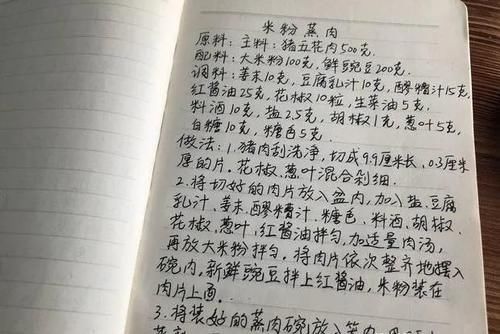 米粉蒸肉
原料：主料：猪五花肉500克
配料：大米粉100克，鲜豌豆200克.
调料：姜末10克，豆腐乳汁10克，醪糟汁15克
红酱油25克，花椒10粒，生菜油5克，
料酒10克，盐2.5克，胡椒1克，葱叶5克，
白糖10克，糖色5克.
做法：1.猪肉刮洗净，切成9.9厘米长、0.3厘米
厚的片。花椒、葱叶混合剁细.
2.将切好的肉片放入盆内，加入盐、豆腐
乳汁、姜末、醪糟汁、糖色、料酒、胡椒、
花椒、葱叶，红酱油拌匀，加适量肉汤，
再放大米粉拌匀。将肉片依次整齐地摆入
碗内，新鲜豌豆拌上红酱油，米粉装在
肉片上面。
3.将装好的蒸肉碗放入笼内